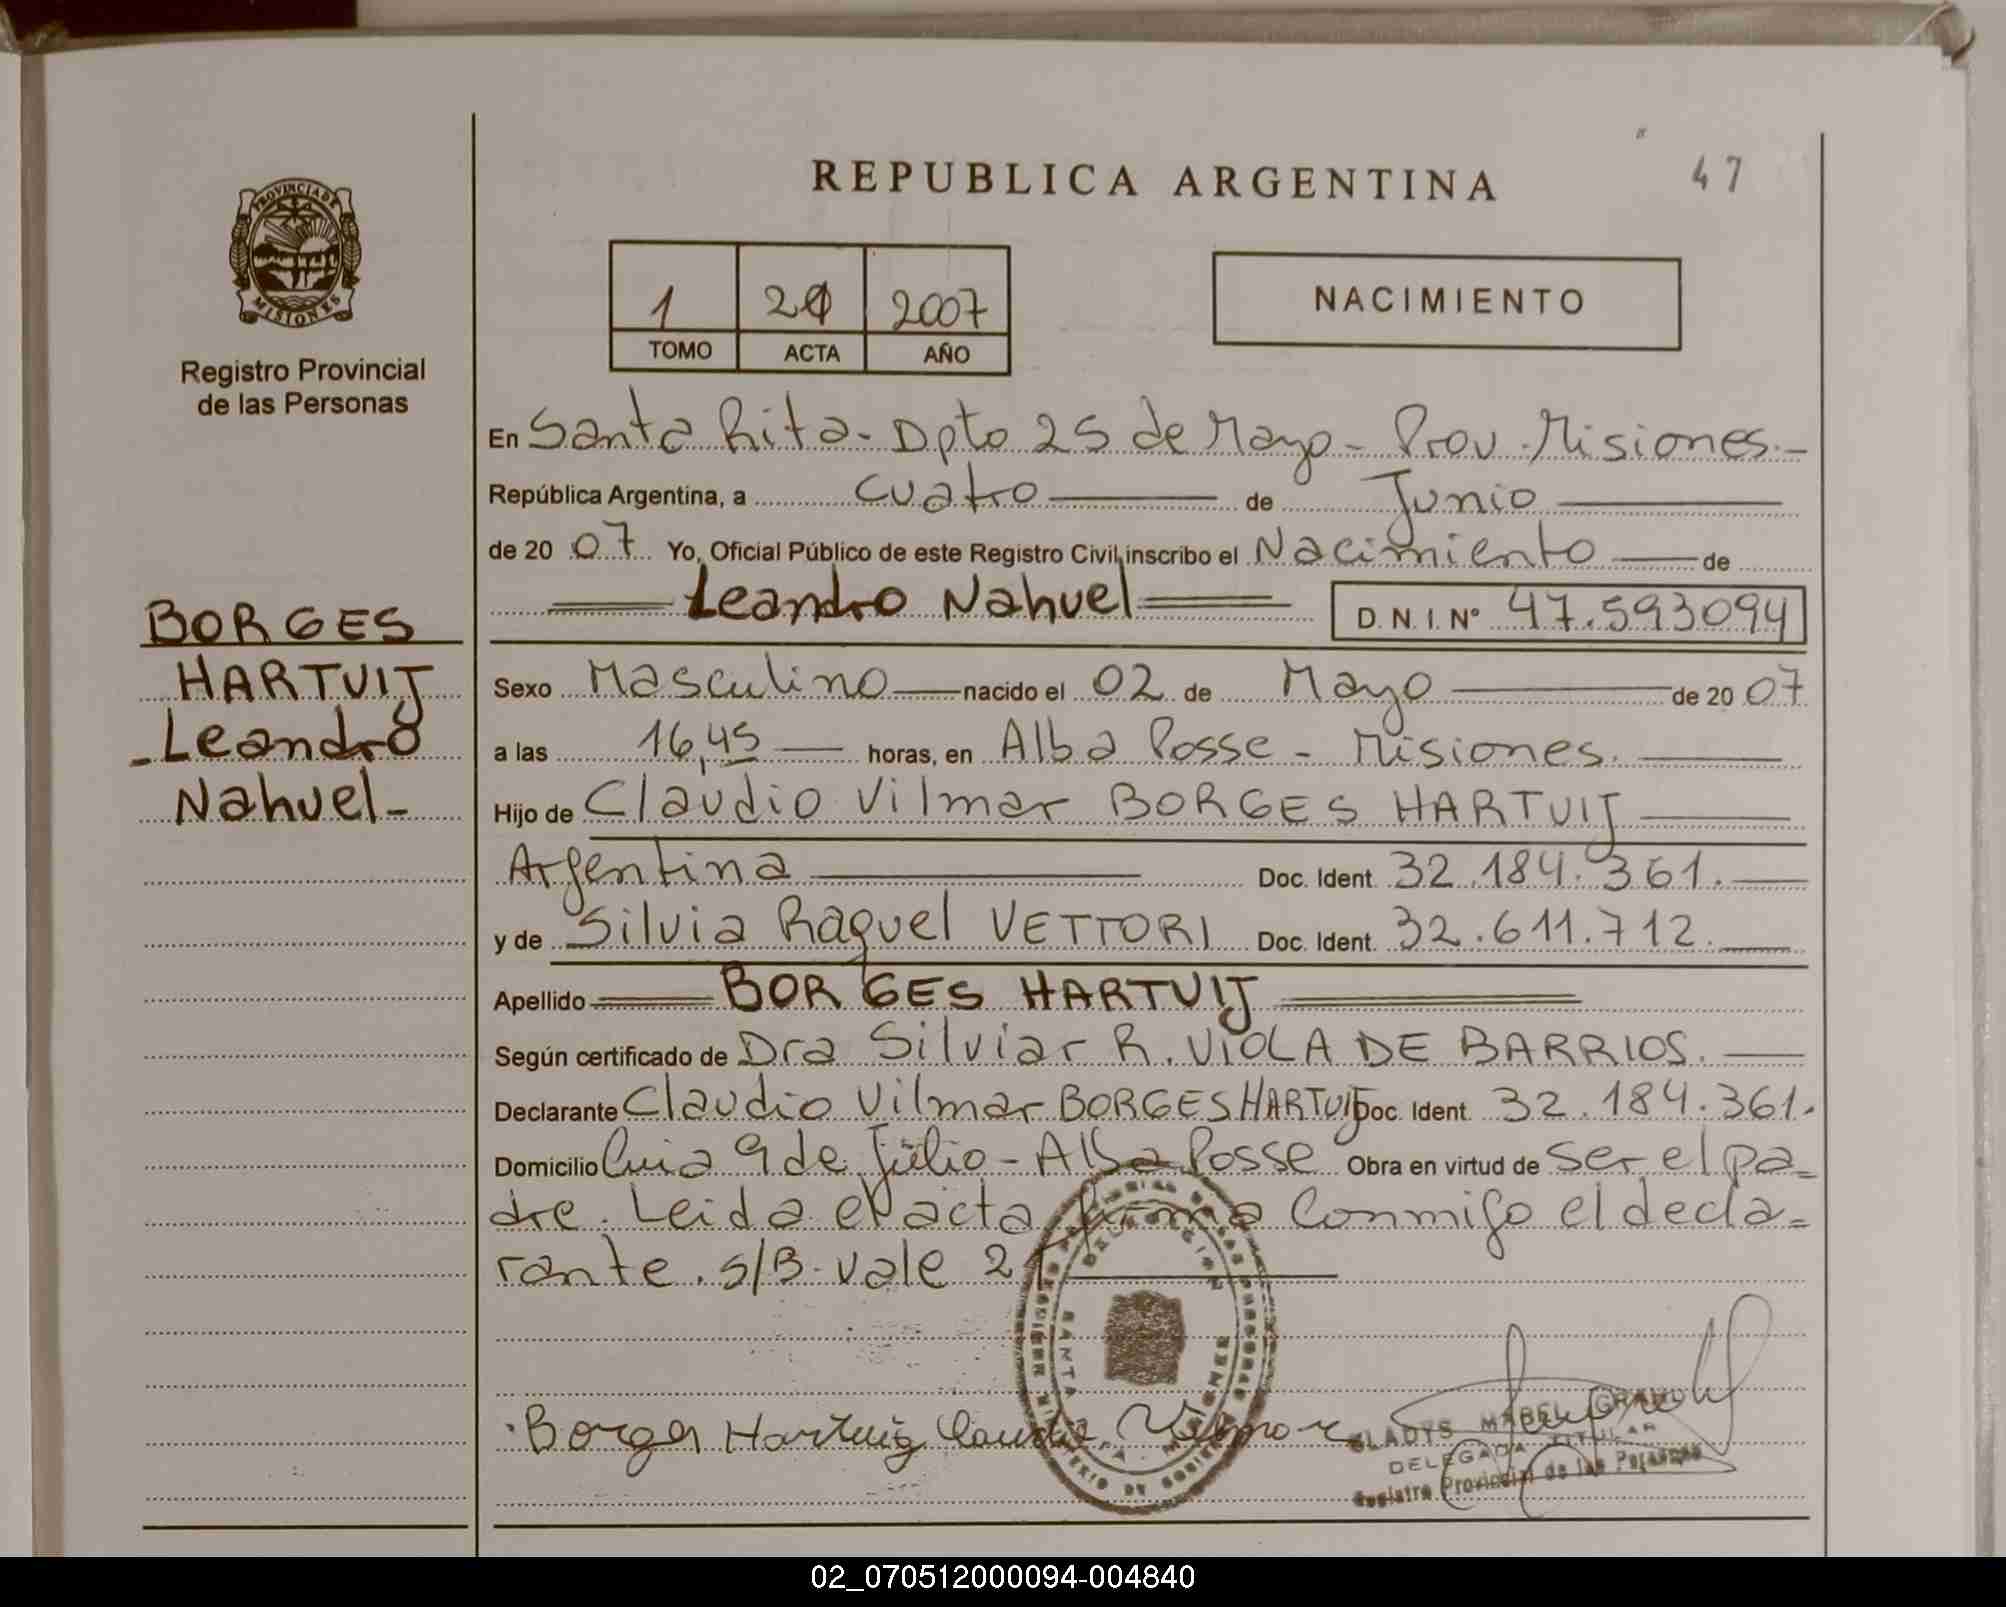 REPUBLICA ARGENTINA
47
PROVINCIA DE
MISIONES
Registro Provincial
de las Personas
1 21 2007
TOMO ACTA AÑO
NACIMIENTO
En Santa Rita - Dpto 25 de Mayo - Prov. Misiones.-
República Argentina, a cuatro de Junio
de 2007 Yo, Oficial Público de este Registro Civil, inscribo el Nacimiento de
Leandro Nahuel D.N.I. Nº 47.593094
BORGES
HARTUIJ
- Leandro
Nahuel -
Sexo Masculino nacido el 02 de Mayo de 2007
a las 16,45 horas, en Alba Posse - Misiones.
Hijo de Claudio Vilmar BORGES HARTUIJ
Argentina Doc. Ident. 32.184.361.
y de Silvia Raquel VETTORI Doc. Ident. 32.611.712.
Apellido BORGES HARTUIJ
Según certificado de Dra Silviar R. VIOLA DE BARRIOS.
Declarante Claudio Vilmar BORGES HARTUIJ Doc. Ident. 32.184.361.
Domicilio 9 de Julio - Alba Posse Obra en virtud de ser el pa=
dre. Leida el acta firma conmigo el decla=
rante. s/B. vale 21
Borges Hartuig Claudio Vilmar
GLADYS MABEL
DELEGADA TITULAR
Registro Provincial de las Personas
SANTA RITA
MISIONES
02_070512000094-004840